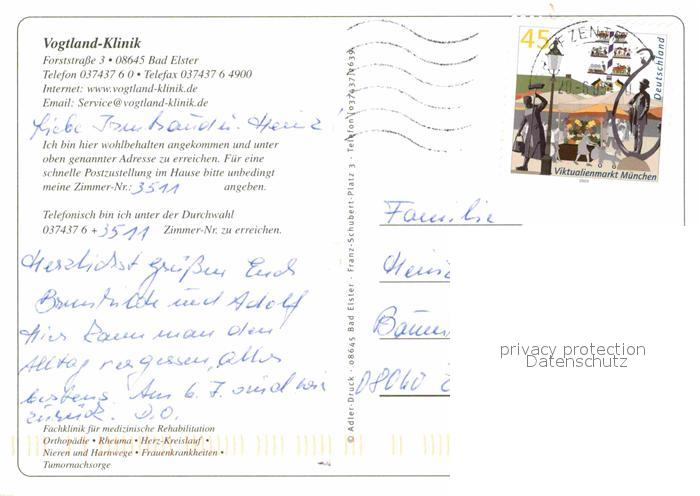 Vogtland-Klinik
Forststraße 3 • 08645 Bad Elster
Telefon 037437 6 0 • Telefax 037437 6 4900
Internet: www.vogtland-klinik.de
Email: Service@vogtland-klinik.de
Liebe Heinz!
Ich bin hier wohlbehalten angekommen und unter
oben genannter Adresse zu erreichen. Für eine
schnelle Postzustellung im Hause bitte unbedingt
meine Zimmer-Nr.: 3511 angeben.
Telefonisch bin ich unter der Durchwahl
037437 6 + 3511 Zimmer-Nr. zu erreichen.
Herzlichst grüßen Euch
und Adolf
Hier kann man den
Alltag vergessen, alles
bestens. Am 6. 7. sind wir
zurück. D.O.
Fachklinik für medizinische Rehabilitation
Orthopädie • Rheuma • Herz-Kreislauf •
Nieren und Harnwege • Frauenkrankheiten •
Tumornachsorge
© Adler-Druck · 08645 Bad Elster · Franz-Schubert-Platz 3 · Telefon (037437)2639
45
Deutschland
Viktualienmarkt München
2003
Familie
08040
privacy protection
Datenschutz